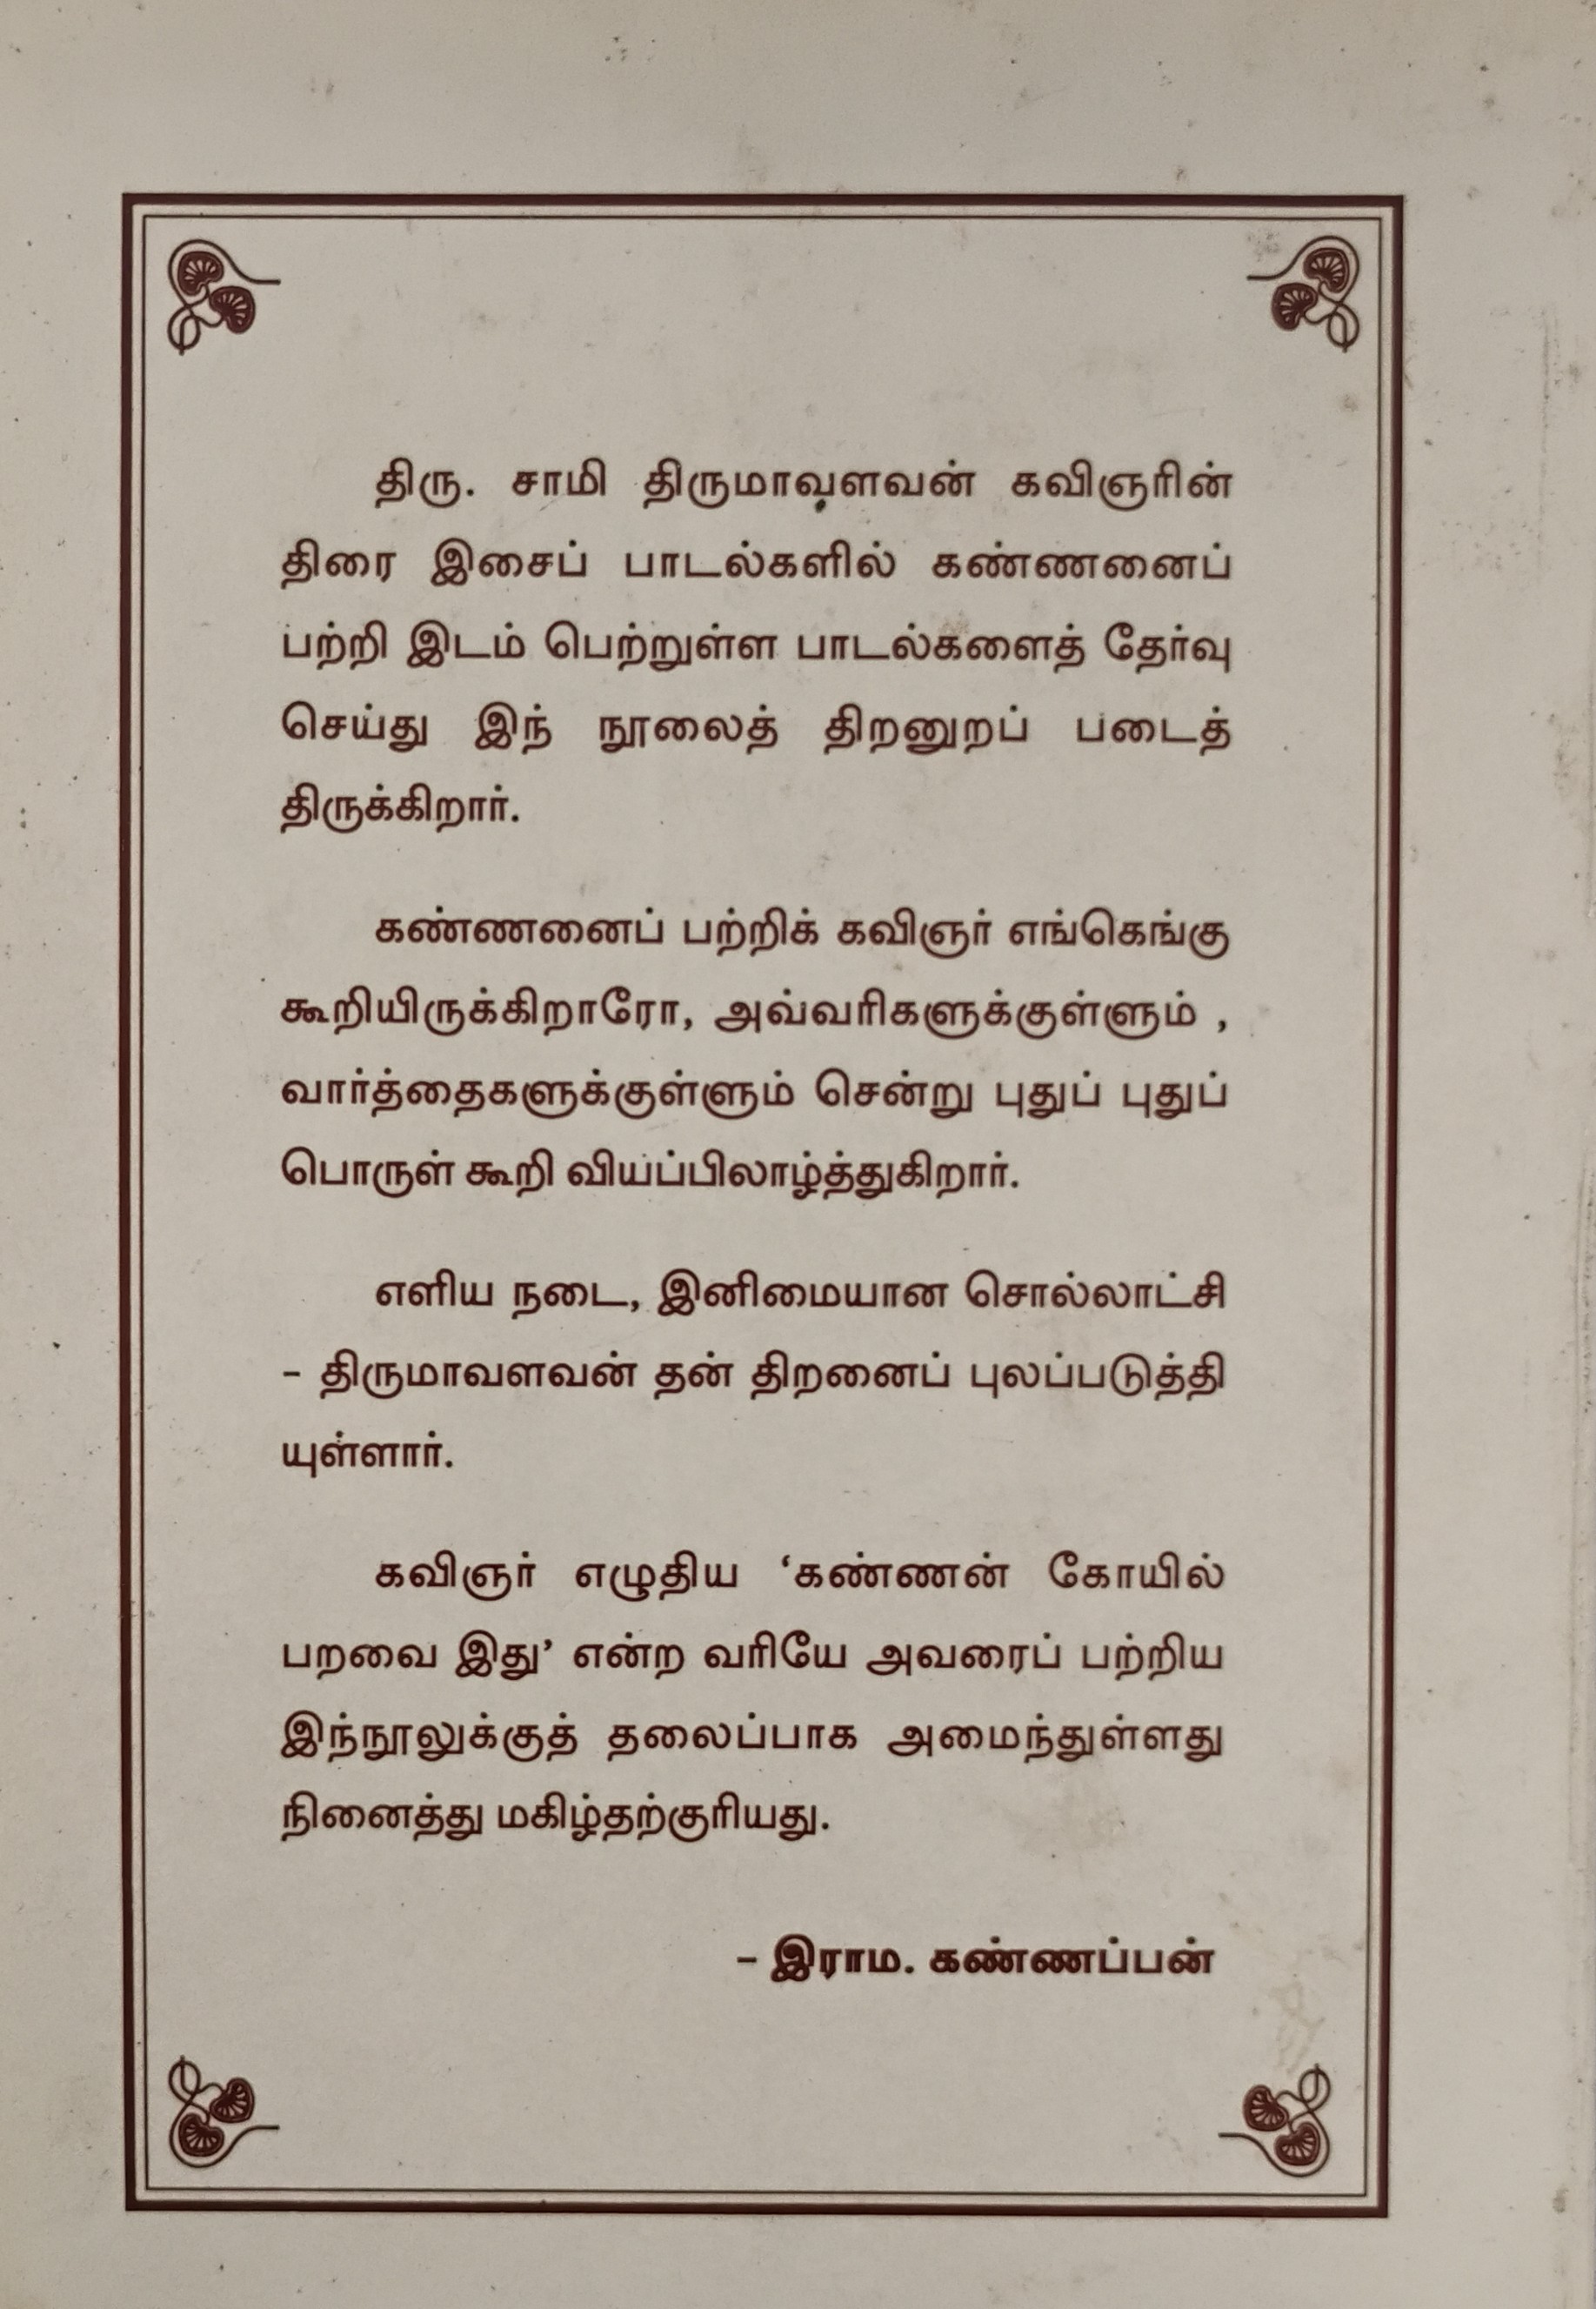 திரு. சாமி திருமாவளவன் கவிஞரின்
திரை இசைப் பாடல்களில் கண்ணனைப்
பற்றி இடம் பெற்றுள்ள பாடல்களைத் தேர்வு
செய்து இந் நூலைத் திறனுறப் படைத்
திருக்கிறார்.
கண்ணனைப் பற்றிக் கவிஞர் எங்கெங்கு
கூறியிருக்கிறாரோ, அவ்வரிகளுக்குள்ளும் ,
வார்த்தைகளுக்குள்ளும் சென்று புதுப் புதுப்
பொருள் கூறி வியப்பிலாழ்த்துகிறார்.
எளிய நடை, இனிமையான சொல்லாட்சி
– திருமாவளவன் தன் திறனைப் புலப்படுத்தி
யுள்ளார்.
கவிஞர் எழுதிய ‘கண்ணன் கோயில்
பறவை இது’ என்ற வரியே அவரைப் பற்றிய
இந்நூலுக்குத் தலைப்பாக அமைந்துள்ளது
நினைத்து மகிழ்தற்குரியது.
– இராம. கண்ணப்பன்